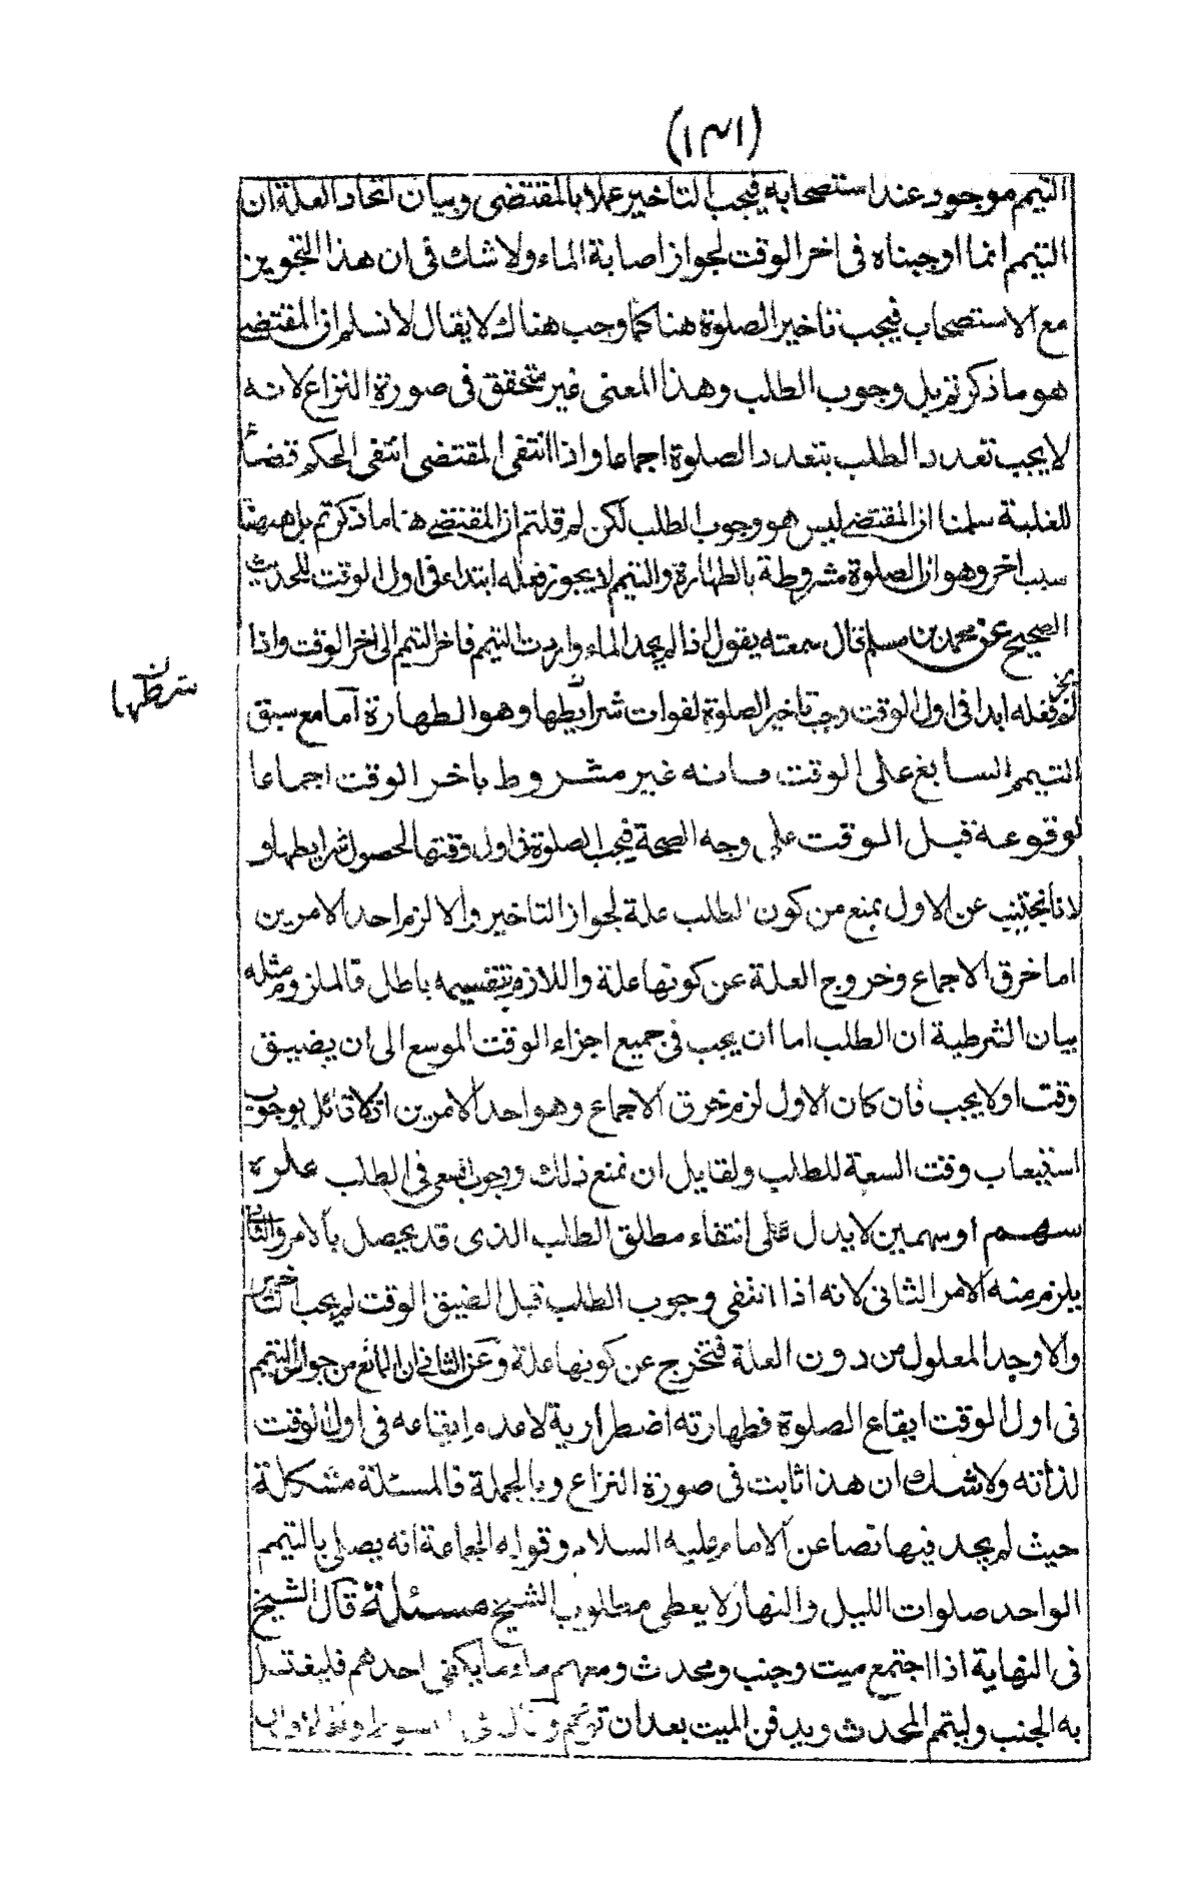 (١٣١)
التيمم موجود عند استصحابه فيجب التاخير عملا بالمقتضى وبيان اتحاد العلة ان
التيمم انما اوجبناه فى اخر الوقت لجواز اصابة الماء ولا شك فى ان هذا التجويز
مع الاستصحاب فيجب تاخير الصلوة هنا كما وجب هناك لا يقال لا نسلم ان المقتضى
هو ما ذكرتم بل وجوب الطلب وهذا المعنى غير متحقق فى صورة النزاع لانه
لا يجب تعدد الطلب بتعدد الصلوة اجماعا واذا انتفى المقتضى انتفى الحكم قضاء
للعلية سلمنا ان المقتضى ليس هو وجوب الطلب لكن لم قلتم ان المقتضى هنا ما ذكرتم بل ههنا
سبب اخر وهو ان الصلوة مشروطة بالطهارة والتيمم لا يجوز فعله ابتداء فى اول الوقت للحديث
الصحيح عن محمد بن مسلم قال سمعته يقول اذا لم يجد الماء واردت التيمم فاخر التيمم الى اخر الوقت واذا
لم يجز فعله ابدا فى اول الوقت وجب تاخير الصلوة لفوات شرايطها وهو الطهارة اما مع سبق
شرطها
التيمم السابغ على الوقت فانه غير مشروط باخر الوقت اجماعا
لوقوعه قبل الوقت على وجه الصحة فيجب الصلوة فى اول وقتها لحصول شرايطها و
لانا نجيب عن الاول بمنع من كون الطلب علة لجواز التاخير والا لزم احد الامرين
اما خرق الاجماع وخروج العلة عن كونها علة واللازم بقسيمه باطل فالملزوم مثله
بيان الشرطية ان الطلب اما ان يجب فى جميع اجزاء الوقت الموسع الى ان يضيق
وقت او لا يجب فان كان الاول لزم خرق الاجماع وهو احد الامرين اذ لا قائل بوجوب
استيعاب وقت السعة للطلب ولقايل ان نمنع ذلك ووجوب السعى فى الطلب غلوة
سهم او سهمين لا يدل على انتفاء مطلق الطلب الذى قد يحصل بالامر والثانى
يلزم منه الامر الثانى لانه اذا انتفى وجوب الطلب قبل الضيق الوقت لم يجب التاخير
والا وجد المعلول من دون العلة فتخرج عن كونها علة وعن الثانى ان المانع من جواز التيمم
فى اول الوقت ايقاع الصلوة فطهارته اضطرارية لا عدم ايقاعه فى اول الوقت
لذاته ولا شك ان هذا ثابت فى صورة النزاع وبالجملة فالمسئلة مشكلة
حيث لم يجد فيها نصا عن الامام عليه السلام وقوله الجماعة انه يصلى بالتيمم
الواحد صلوات الليل والنهار لا يعطى مطلوب الشيخ مسئلة قال الشيخ
فى النهاية اذا اجتمع ميت وجنب ومحدث ومعهم ماء ما يكفى احدهم فليغتسل
به الجنب وليتمم المحدث ويدفن الميت بعد ان تيمم وقال فى